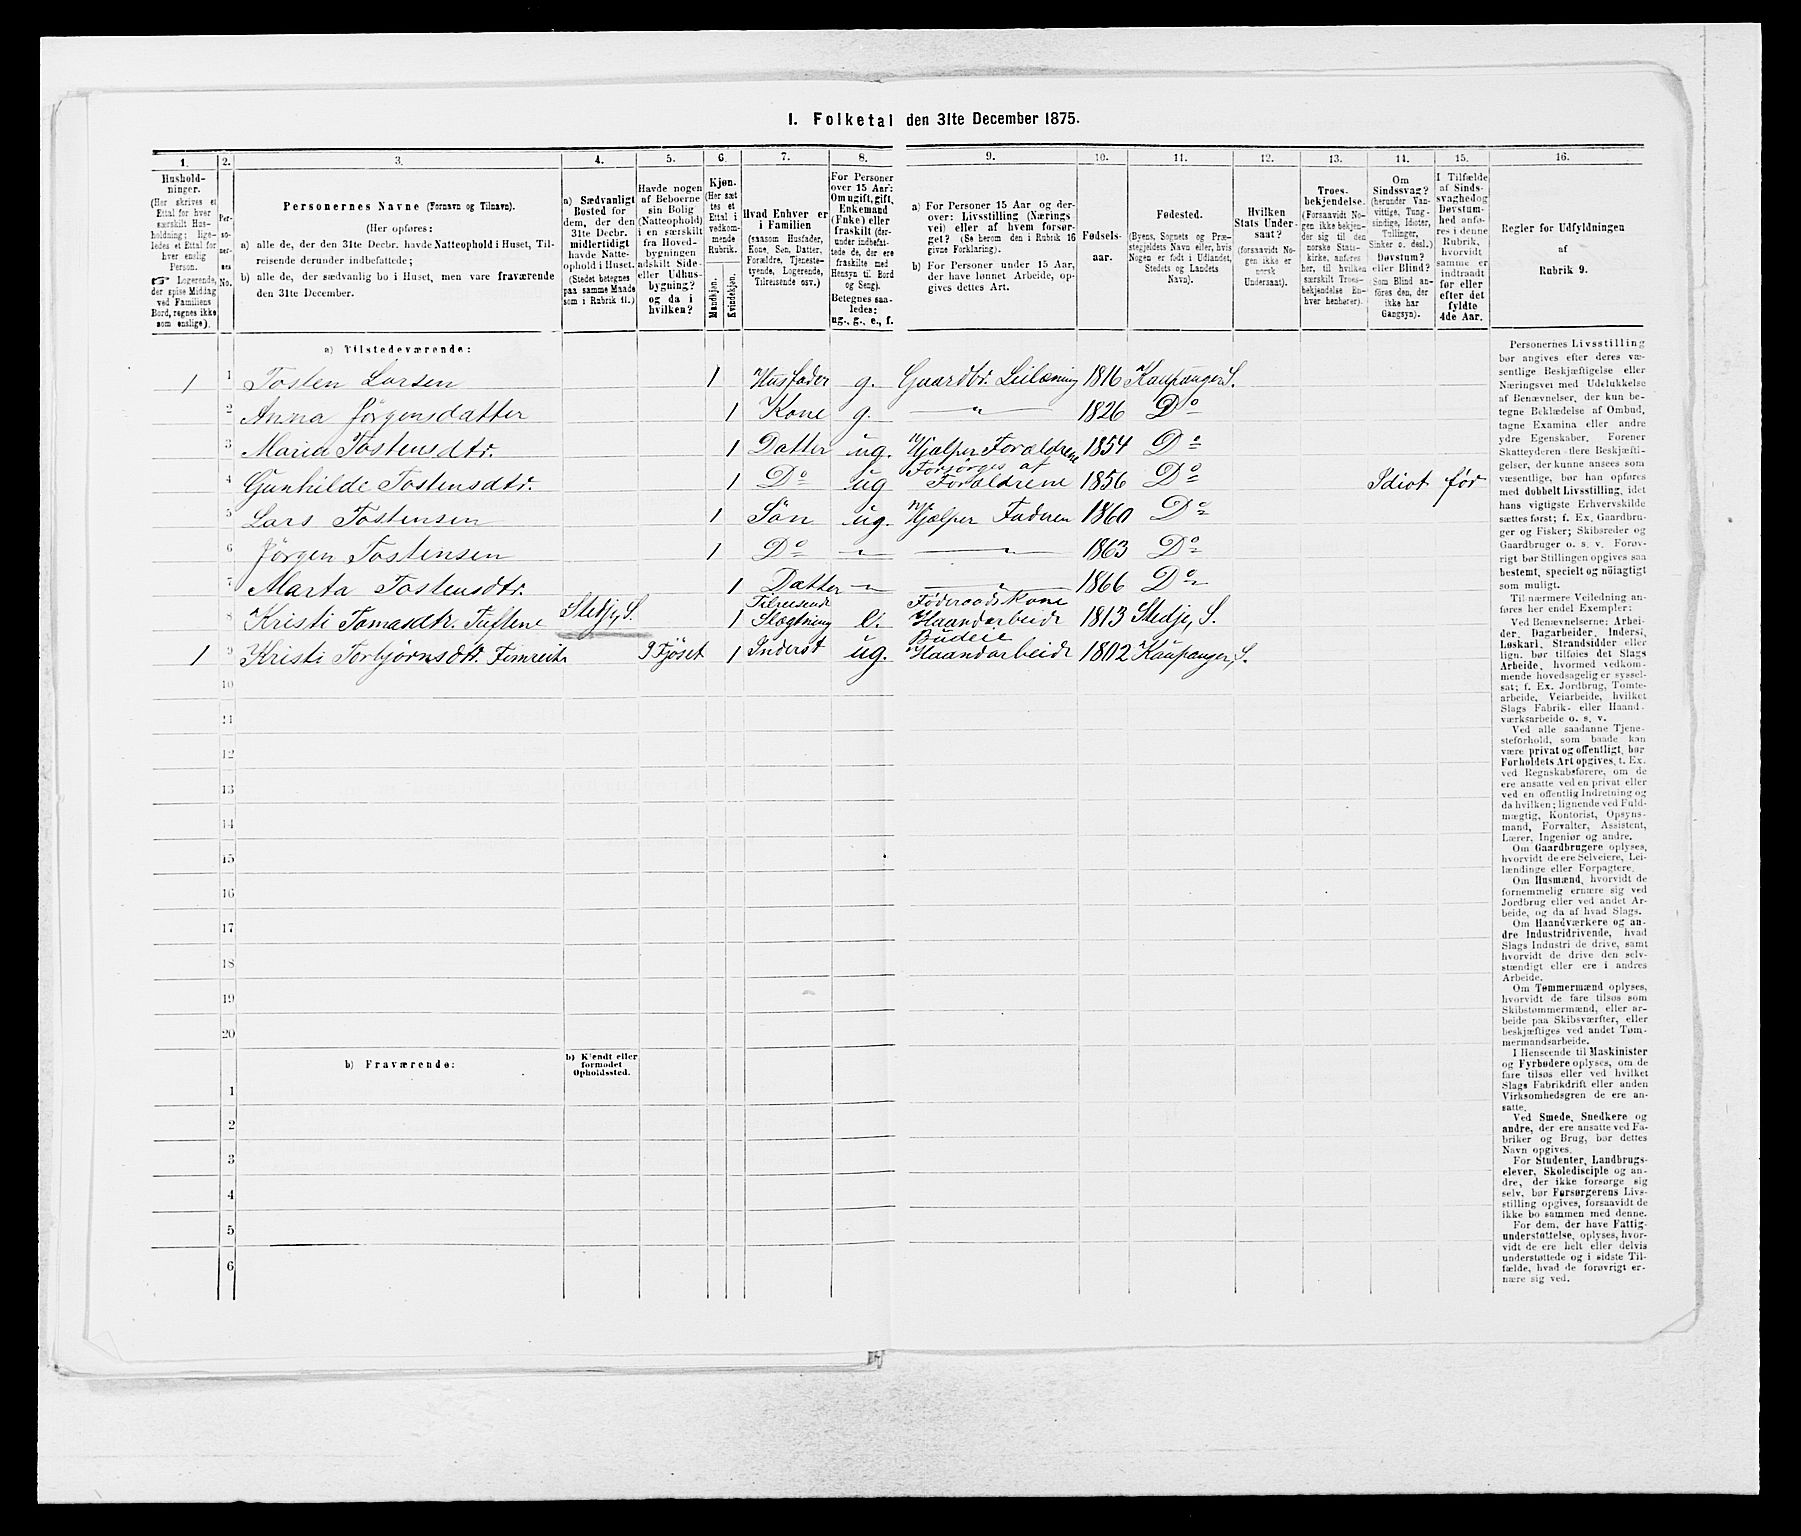 I. Folketal den 31te December 1875.
1. 2. 3. 4. 5. 6. 7. 8. 9. 10. 11. 12. 13. 14. 15. 16.
Hushold-
ninger.
(Her skrives et
Ettal for hver
særskilt Hus-
holdning; lige-
ledes et Ettal for
hver enslig
Person.
☞ Logerende,
der spise Middag
ved Familiens
Bord, regnes ikke
som enslige).
Per-
so-
ner-
nes
No.
Personernes Navne (Fornavn og Tilnavn).
(Her opføres:
a) alle de, der den 31te Decbr. havde Natteophold i Huset, Til-
reisende derunder indbefattede;
b) alle de, der sædvanlig bo i Huset, men vare fraværende
den 31te December.
a) Sædvanligt
Bosted for
dem, der den
31te Decbr.
midlertidigt
havde Natte-
ophold i Huset.
(Stedet betegnes
paa samme Maade
som i Rubrik 11.)
Havde nogen
af Beboerne
sin Bolig
(Natteophold)
i en særskilt
fra Hoved-
bygningen
adskilt Side-
eller Udhus-
bygning?
og da i
hvilken?
Kjøn.
(Her sæt-
tes et
Ettal i
vedkom-
mende
Rubrik.
Mandkjøn.
Kvindekjøn.
Hvad Enhver er
i Familien
(saasom Husfader,
Kone, Søn, Datter,
Forældre, Tjeneste-
tyende, Logerende,
Tilreisende osv.)
For Personer
over 15 Aar:
Om ugift, gift,
Enkemand
(Enke) eller
fraskilt (der-
under indbefat-
tede de, der ere
fraskilte med
Hensyn til Bord
og Seng).
Betegnes saa-
ledes:
ug., g., e., f.
a) For Personer 15 Aar og der-
over: Livsstilling (Nærings
vei) eller af hvem forsør-
get? (Se herom den i Rubrik 16
givne Forklaring).
b) For Personer under 15 Aar,
der have lønnet Arbeide, op-
gives dettes Art.
Fødsels-
aar.
Fødested.
(Byens, Sognets og Præ-
stegjeldets Navn eller, hvis
Nogen er født i Udlandet,
Stedets og Landets
Navn).
Hvilken
Stats Under-
saat?
(forsaavidt No-
gen ikke er
norsk
Undersaat).
Troes-
bekjendelse.
(Forsaavidt No-
gen ikke bekjen-
der sig til den
norske Stats-
kirke, anføres
her, til hvilken
særskilt Troes-
bekjendelse En-
hver henhører).
Om
Sindssvag?
(herunder Van-
vittige, Tung-
sindige, Idioter,
Tullinger,
Sinker o. desl.)
Døvstum?
eller Blind?
(Som Blind an-
føres den, der
ikke har
Gangsyn).
I Tilfælde
af Sinds-
svaghed og
Døvstum-
hed anfø-
res i denne
Rubrik,
hvorvidt
samme er
indtraadt
før eller
efter det
fyldte
4de Aar.
Regler for Udfyldningen
af
Rubrik 9.
a) Tilstedeværende:
1 1 Tosten Larsen 1 Husfader g. Gaardbr. Leilæning 1816 Kaupanger S.
2 Anna Jörgensdatter 1 Kone g. " 1826 Do
3 Maria Tostensdtr. 1 Datter ug. Hjælper Forældrene 1854 Do
4 Gunhilde Tostensdtr. 1 Do ug Forsörges af Forældrene 1856 Do Idiot før
5 Lars Tostensen 1 Sön ug. Hjælper Faderen 1860 Do
6 Jörgen Tostensen 1 Do " " 1863 Do
7 Marta Tostensdtr. 1 Datter " 1866 Do
8 Kristi Tomasdtr. Tuftene Stedje, S. 1 Tilreisende Slægtning e. Föderaadskone Haandarbeide 1813 Stedje, S.
1 9 Kristi Torbjörnsdtr. Fimreite I Fjöset 1 Inderst ug. Budeie Haandarbeide 1802 Kaupanger, S.
10
11
12
13
14
15
16
17
18
19
20
b) Fraværende:
b) Kjendt eller
formodet
Opholdssted.
1
2
3
4
5
6
Personernes Livsstilling
bør angives efter deres væ-
sentlige Beskjæftigelse eller
Næringsvei med Udelukkelse
af Benævnelser, der kun be-
tegne Beklædelse af Ombud,
tagne Examina eller andre
ydre Egenskaber. Forener
Skatteyderen flere Beskjæfti-
gelser, der kunne ansees som
væsentlige, bør han opføres
med dobbelt Livsstilling, idet
hans vigtigste Erhvervskilde
sættes først; f. Ex. Gaardbru-
ger og Fisker; Skibsreder og
Gaardbruger o. s. v. Forøv-
rigt bør Stillingen opgives saa
bestemt, specielt og nøiagtigt
som muligt.
Til nærmere Veiledning an-
føres her endel Exempler:
Ved Benævnelserne: Arbei-
der, Dagarbeider, Inderst,
Løskarl, Strandsidder eller
lign. bør tilføies det Slags
Arbeide, hvormed vedkom-
mende hovedsagelig er syssel-
sat; f. Ex. Jordbrug, Tomte-
arbeide, Veiarbeide, hvilket
Slags Fabrik- eller Haand-
værksarbeide o. s. v.
Ved alle saadanne Tjene-
steforhold, som baade kan
være privat og offentligt, bør
Forholdets Art opgives, t. Ex.
ved Regnskabsførere, om de
ere ansatte ved en privat eller
ved en offentlig Indretning og
da hvilken; lignende ved Fuld-
mægtig, Kontorist, Opsyns-
mand, Forvalter, Assistent,
Lærer, Ingeniør og andre.
Om Gaardbrugere oplyses,
hvorvidt de ere Selveiere, Lei-
lændinge eller Forpagtere.
Om Husmænd, hvorvidt de
fornemmelig ernære sig ved
Jordbrug eller ved andet Ar-
beide, og da af hvad Slags.
Om Haandværkere og an-
dre Industridrivende, hvad
Slags Industri de drive, samt
hvorvidt de drive den selv-
stændigt eller ere i andres
Arbeide.
Om Tømmermænd oplyses,
hvorvidt de fare tilsøs som
Skibstømmermænd, eller ar-
beide paa Skibsværfter, eller
beskjæftiges ved andet Tøm-
mermandsarbeide.
I Henseende til Maskinister
og Fyrbødere oplyses, om de
fare tilsøs eller ved hvilket
Slags Fabrikdrift eller anden
Virksomhedsgren de ere an-
satte.
Ved Smede, Snedkere og
andre, der ere ansatte ved Fa-
briker og Brug, bør dettes
Navn opgives.
For Studenter, Landbrugs-
elever, Skoledisciple og an-
dre, der ikke forsørge sig
selv, bør Forsørgerens Livs-
stilling opgives, forsaavidt de
ikke bo sammen med denne.
For dem, der have Fattig-
understøttelse, oplyses, hvor-
vidt de ere helt eller delvis
understøttede og i sidste Til-
fælde, hvad de forøvrigt er-
nære sig ved.